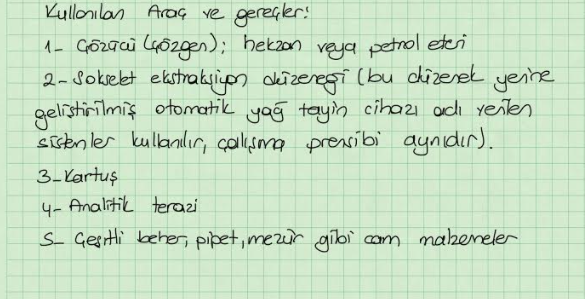 Kullanılan Araç ve gereçler:
1- Çözücü (Çözgen); hekzan veya petrol eteri
2- Sokselet ekstraksiyon düzeneği (bu düzenek yerine
geliştirilmiş otomatik yağ tayin cihazı adı verilen
sistemler kullanılır, çalışma prensibi aynıdır).
3- Kartuş
4- Analitik terazi
5- Çeşitli beher, pipet, mezür gibi cam malzemeler